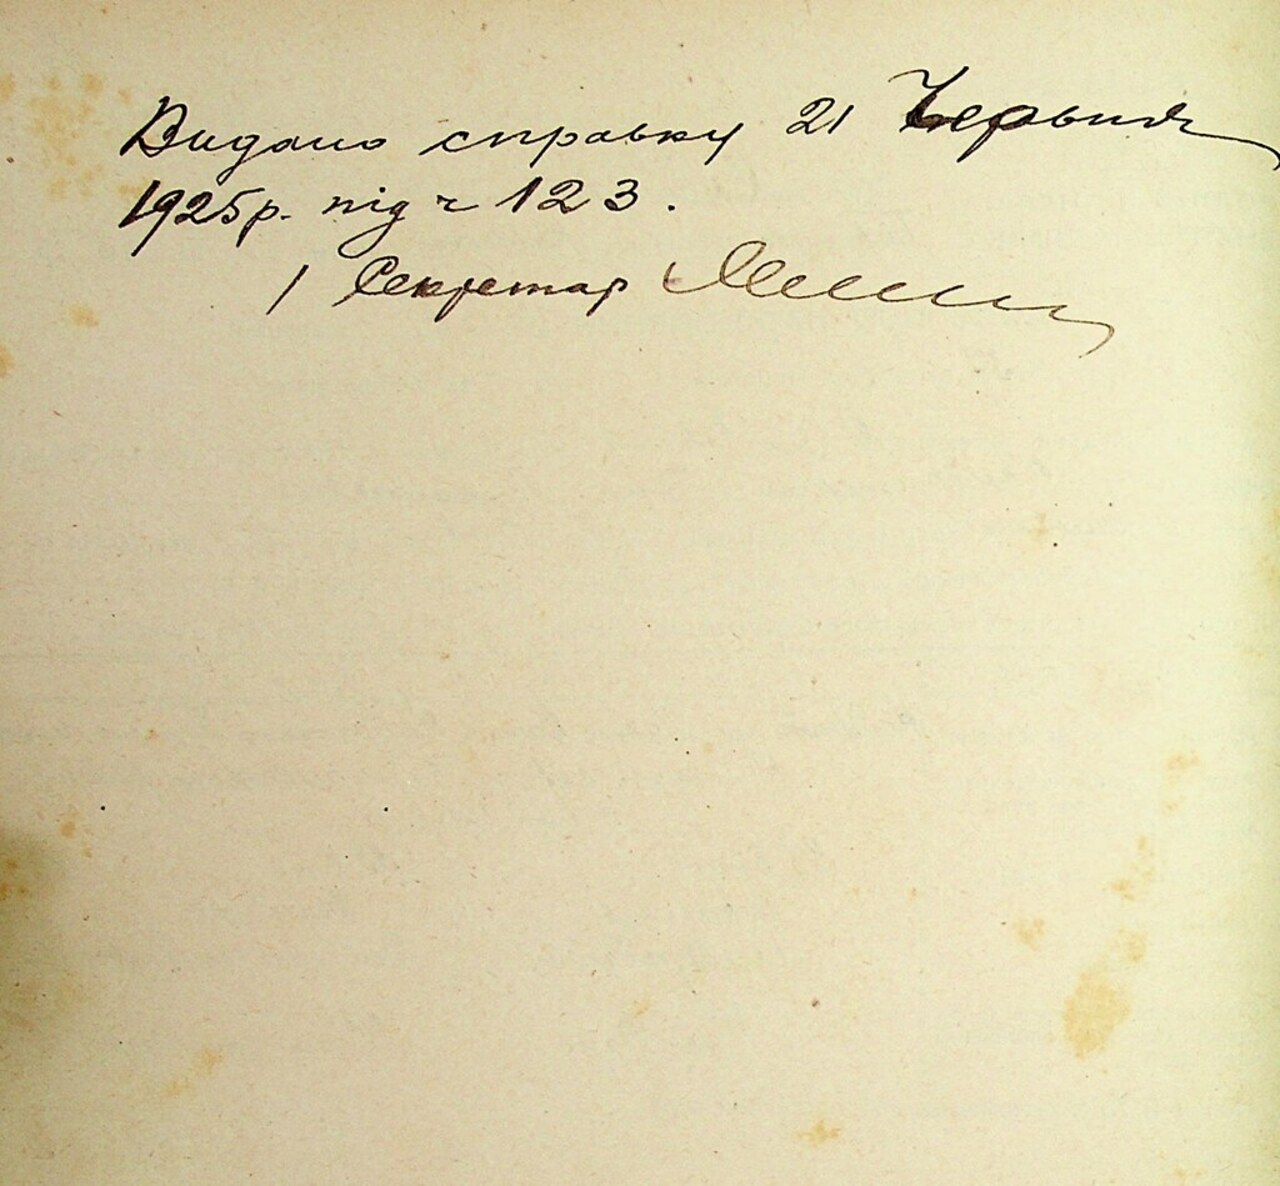 Видано справку 21 Червня
1925р. під ч 123.
/ Секретар